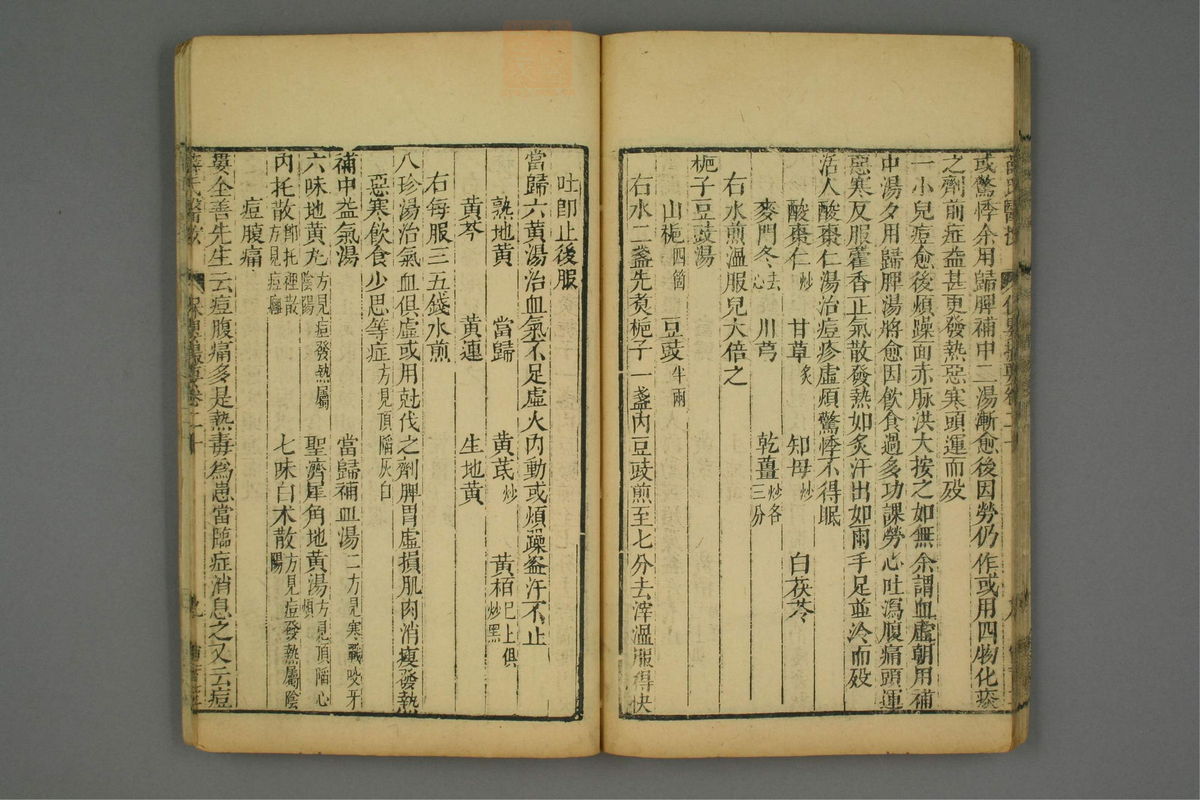 或驚悸余用歸脾補中二湯漸愈後因勞仍作或用四物化痰
之劑前症益甚更發熱惡寒頭運而歿
一小兒痘愈後煩躁面赤脉洪大按之如無余謂血虛朝用補
中湯夕用歸脾湯將愈因飲食過多功課勞心吐瀉腹痛頭運
惡寒反服藿香正氣散發熱如炙汗出如雨手足並冷而歿
活人酸棗仁湯治痘疹虛煩驚悸不得眠
酸棗仁炒 甘草炙 知母炒 白茯苓
麥門冬去心 川芎 乾薑炒各三分
右水煎溫服兒大倍之
梔子豆豉湯
山梔四箇 豆豉半兩
右水二盞先煑梔子一盞內豆豉煎至七分去滓溫服得快
吐卽止後服
當歸六黃湯治血氣不足虛火內動或煩躁盜汗不止
熟地黃 當歸 黃茋炒 黃栢炒黑 已上俱
黃芩 黃連 生地黃
右每服三五錢水煎
八珍湯治氣血俱虛或用尅伐之劑脾胃虛損肌肉消瘦發熱
惡寒飲食少思等症方見頂陷灰白
補中益氣湯 當歸補血湯二方見寒戰咬牙
六味地黃丸方見痘發熱屬陰陽 聖濟犀角地黃湯方見頂陷心煩
內托散卽托裡散方見痘癰 七味白术散方見痘發熱屬陰陽
痘腹痛
婁全善先生云痘腹痛多是熱毒爲患當臨症消息之又云痘